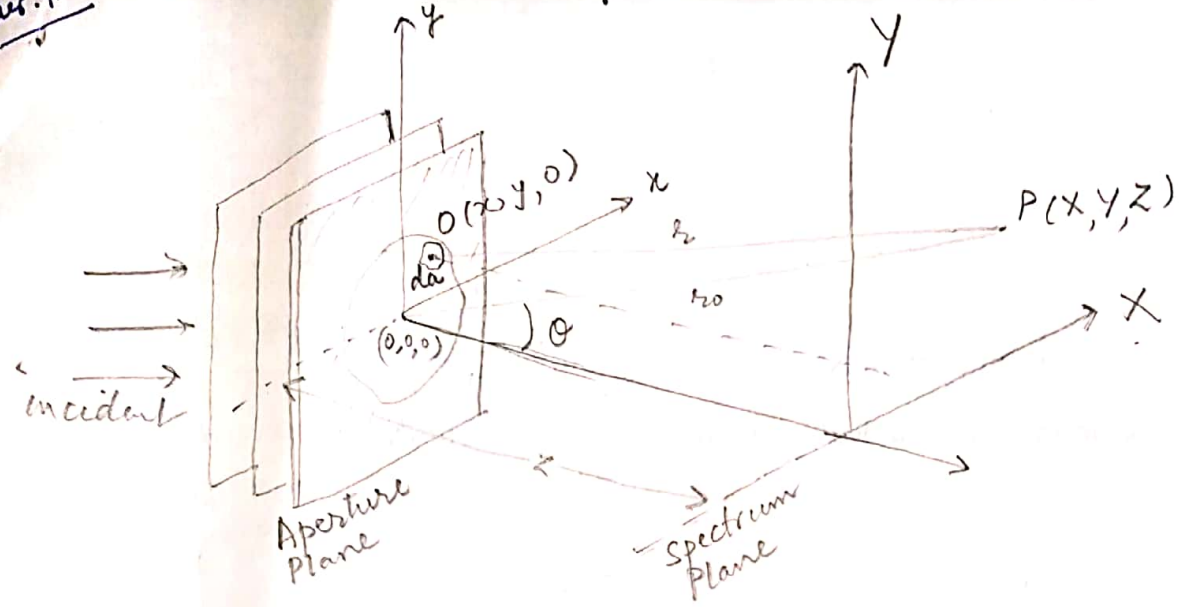 y
Y
O(x, y, 0)
x
P(X,Y,Z)
da
r
r0
X
(0,0,0)
θ
incident
z
Aperture
Plane
Spectrum
Plane